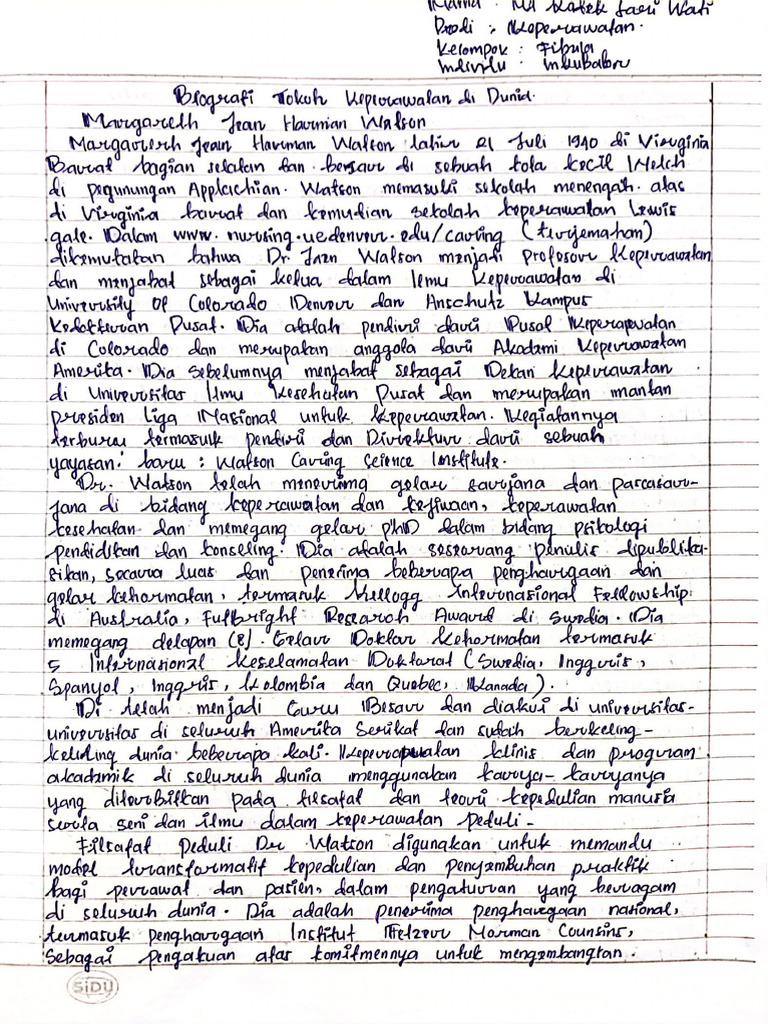 Nama : Ni Kadek Sari Wati
Prodi : Keperawatan.
Kelompok : Fibula
Individu : Inkubator
Biografi Tokoh Keperawatan di Dunia.
Margareth Jean Harman Watson
Margareth Jean Harman Watson lahir 21 Juli 1940 di Virginia
Barat bagian selatan dan besar di sebuah kota kecil Welch
di pegunungan Applachian. Watson memasuki sekolah menengah atas
di Virginia barat dan kemudian sekolah keperawatan Lewis
gale. Dalam www.nursing.ucdenver.edu/caring (terjemahan)
dikemukakan bahwa Dr. Jean Watson menjadi Profesor Keperawatan
dan menjabat sebagai ketua dalam Ilmu Keperawatan di
University Of Colorado Denver dan Anschutz Kampus
Kedokteran Pusat. Dia adalah pendiri dari Pusat Keperawatan
di Colorado dan merupakan anggota dari Akademi Keperawatan
Amerika. Dia sebelumnya menjabat sebagai Dekan keperawatan
di Universitas Ilmu Kesehatan Pusat dan merupakan mantan
presiden Liga Nasional untuk keperawatan. Kegiatannya
terburu termasuk pendiri dan Direktur dari sebuah
yayasan baru : Watson Caring Science Institute.
Dr. Watson telah menerima gelar sarjana dan pascasar-
jana di bidang keperawatan dan kejiwaan, keperawatan
kesehatan dan memegang gelar PhD dalam bidang psikologi
pendidikan dan konseling. Dia adalah seseorang penulis dipublika-
sikan, secara luas dan penerima beberapa penghargaan dan
gelar kehormatan, termasuk Kellogg Internasional Fellowship
di Australia, Fulbright Research Award di Swedia. Dia
memegang delapan (8). Gelar Doktor kehormatan termasuk
5 Internasional keselamatan Doktoral (Swedia, Inggris,
Spanyol, Inggris, Kolombia dan Quebec, Kanada).
Di telah menjadi Guru Besar dan diakui di universitas-
universitas di seluruh Amerika Serikat dan sudah berkeling-
keliling dunia beberapa kali. Keperawatan klinis dan program
akademik di seluruh dunia menggunakan karya-karyanya
yang diterbitkan pada filsafat dan teori kepedulian manusia
serta seni dan ilmu dalam keperawatan peduli.
Filsafat Peduli Dr Watson digunakan untuk memandu
model transformatif kepedulian dan penyembuhan praktik
bagi perawat dan pasien, dalam pengaturan yang beragam
di seluruh dunia. Dia adalah penerima penghargaan nasional,
termasuk penghargaan Institut Fetzer Norman Counsins,
Sebagai pengakuan atas komitmennya untuk mengembangkan.
SiDU